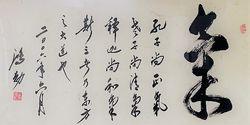 氣
孔子尚正氣
老子尚清氣
釋迦尚和氣
斯三者乃東方
之大道也
二〇〇六年六月